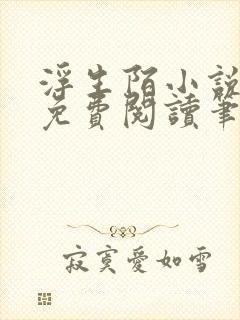 浮生陌小說
免費閱讀筆
寂寞愛如雪